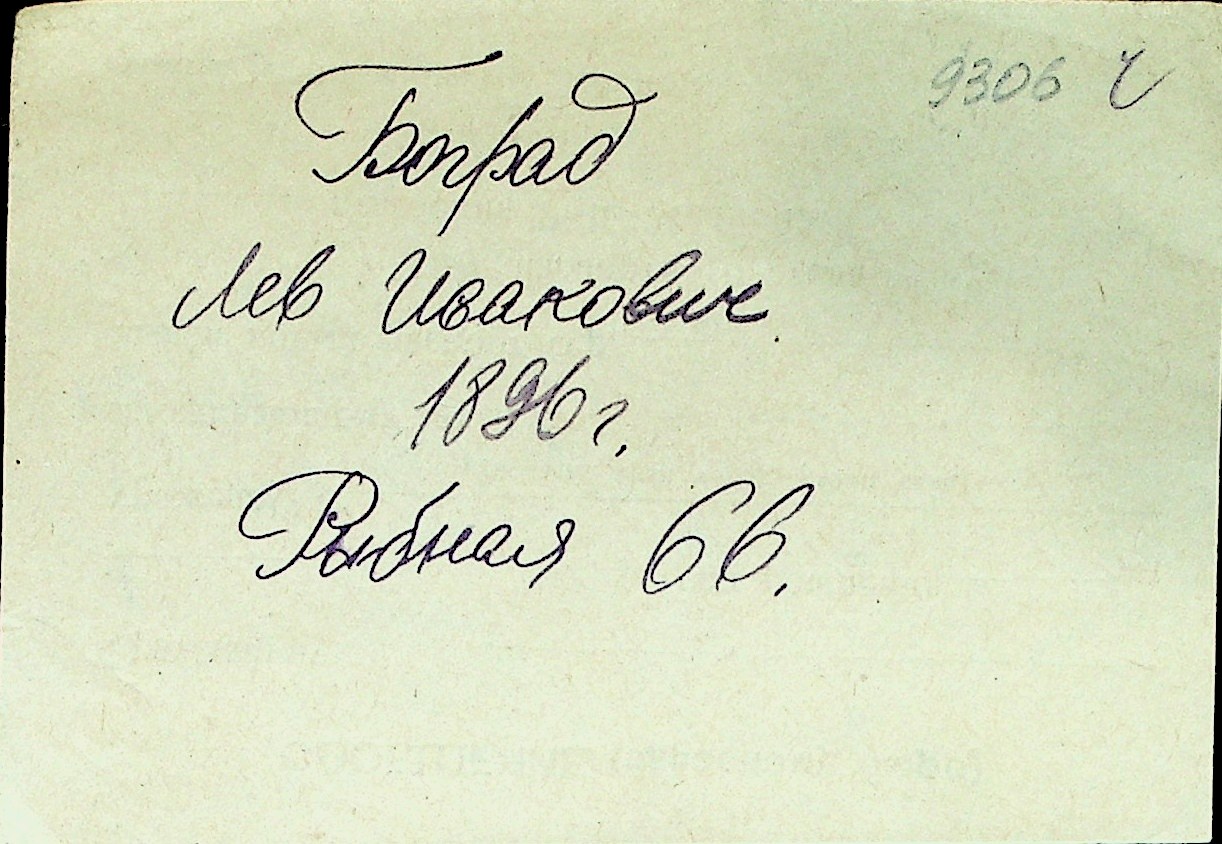 9306 ч
Боград
Лев Исакович
1896 г.
Рыбная 66.